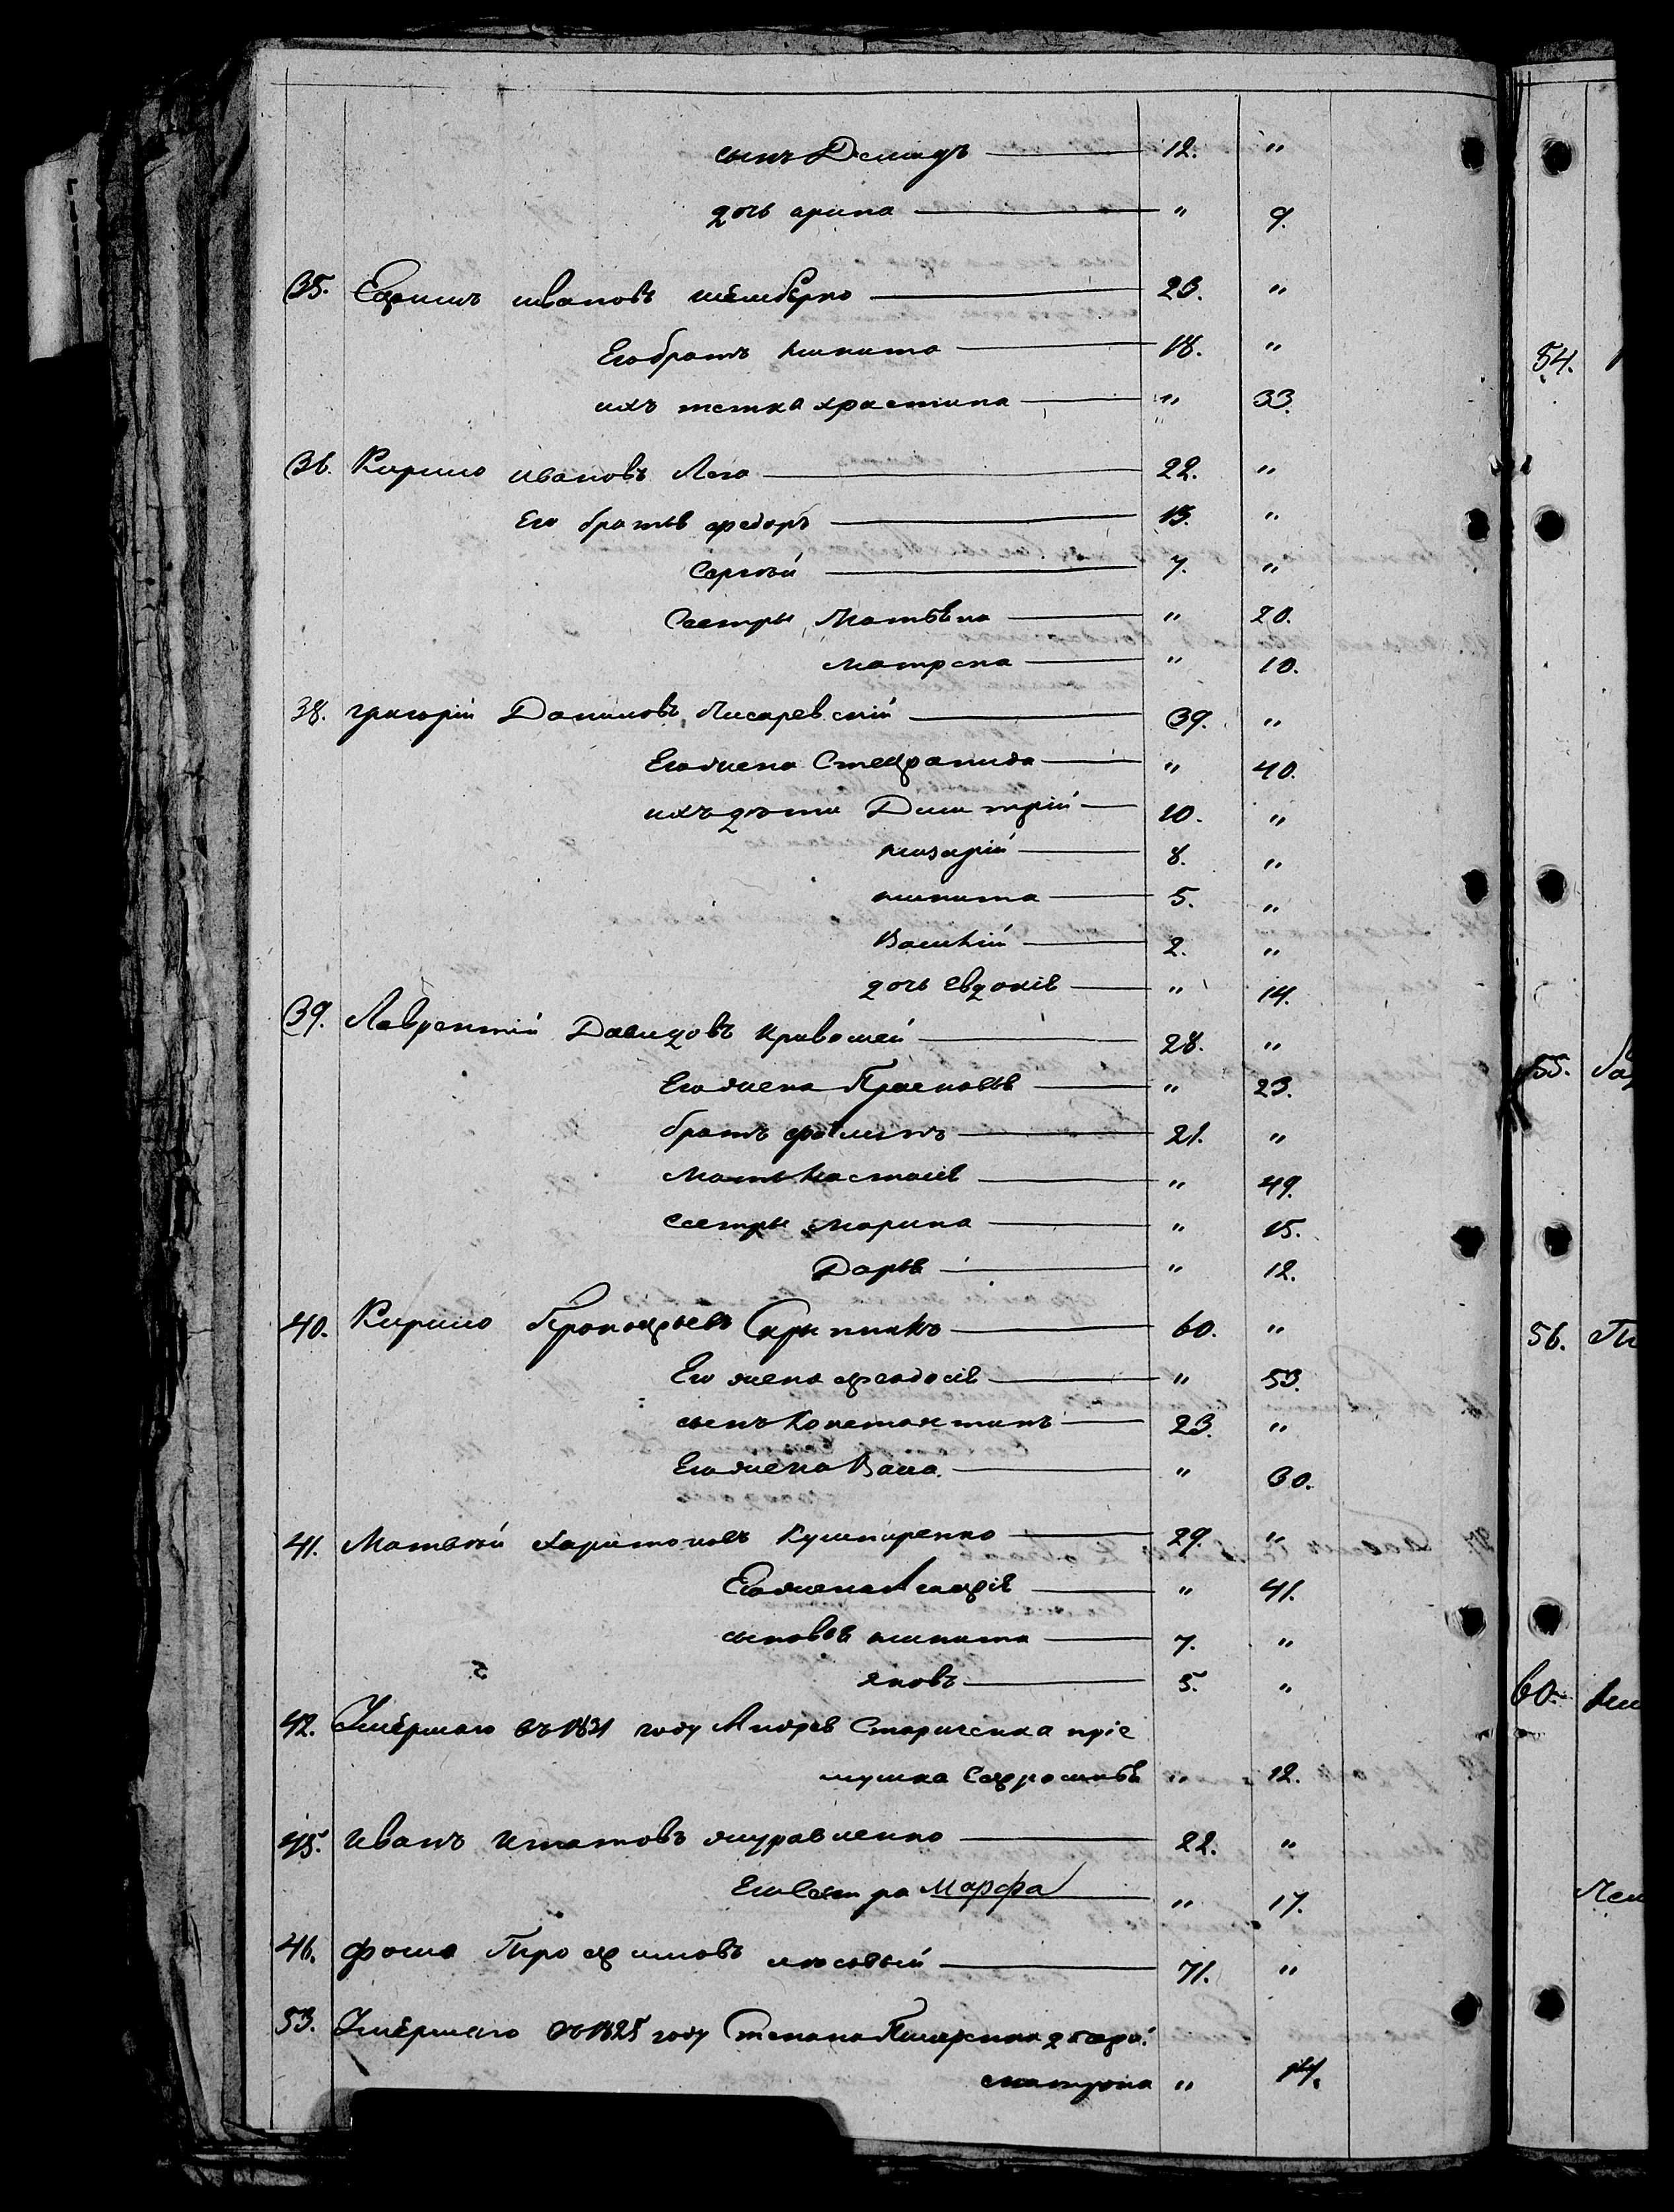 сынъ Демидъ — 12. "
дочь арина — " 9.
35. Ефимъ ивановъ — 23. "
Его братъ никита — 18. "
ихъ тетка христина — " 33.
36. Кирило ивановъ Лега — 22. "
Его братья федоръ — 13. "
Сергѣй — 7. "
Сестры Матвѣна — " 20.
матрена — " 10.
38. григорій Даниловъ Писаревскій — 39. "
Его жена Стефанида — " 40.
ихъ дѣти Димитрій — 10. "
назарій — 8. "
никита — 5. "
Василій — 2. "
дочь Евдокія — " 14.
39. Лаврентій Давидовъ Кривошей — 28. "
Его жена Прасковья — " 23.
братъ филипъ — 21. "
мать Настасія — " 49.
сестры марина — " 15.
Дарья — " 12.
40. Кирило Прокофьевъ Скрыпникъ — 60. "
Его жена феодосія — " 53.
сынъ Константинъ — 23. "
Его жена Васа — " 30.
41. Матвѣй Харитоновъ Кушниренко — 29. "
Его жена Агафія — " 41.
сыновья никита — 7. "
яковъ — 5. "
42. Умёршаго въ 1831 году Андрея Стариченка пріе
мушка Ефросинья " 12.
45. Иванъ Игнатовъ журавленко — 22. "
Его Сестра Марфа " 17.
46. фома Трофимовъ лисовый — 71. "
53. Умёршаго въ 1825 году Степана
матрона "
54.
55.
56.
60.